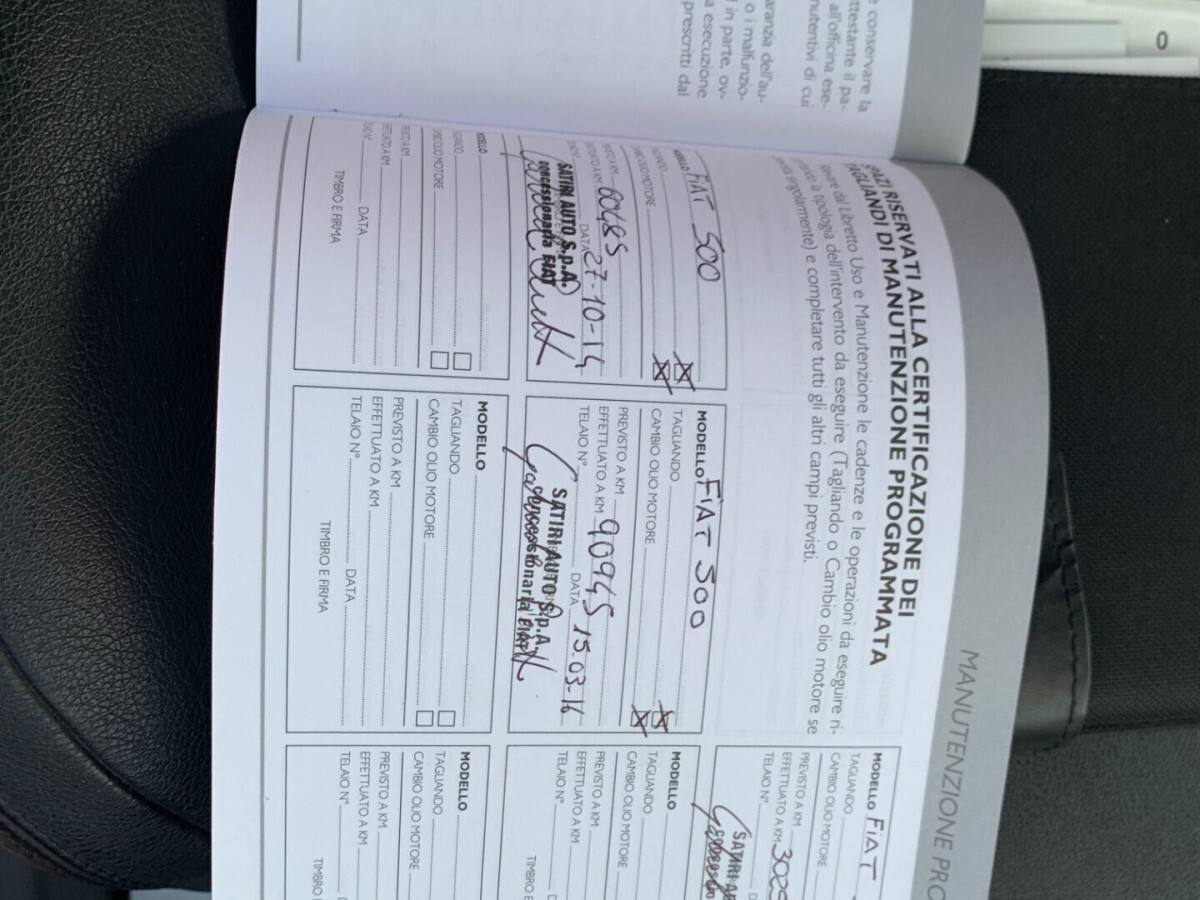 e conservare la
ttestante il pa-
all'officina ese-
nutentivi di cui
aranzia dell'au-
o i malfunzio-
in parte, ov-
a esecuzione
prescritti dal
MANUTENZIONE PRO
AZI RISERVATI ALLA CERTIFICAZIONE DEI
TAGLIANDI DI MANUTENZIONE PROGRAMMATA
Libretto Uso e Manutenzione le cadenze e le operazioni da eseguire ri-
la tipologia dell'intervento da eseguire (Tagliando o Cambio olio motore se
singolarmente) e completare tutti gli altri campi previsti.
MODELLO FIAT
TAGLIANDO
CAMBIO OLIO MOTORE
PREVISTO A KM
EFFETTUATO A KM 3025
TELAIO N°
MODELLO FIAT 500
CAMBIO OLIO MOTORE
60485
DATA 27-10-14
SATIRI AUTO S.p.A.
concessionaria FIAT
MODELLO FIAT 500
TAGLIANDO
CAMBIO OLIO MOTORE
PREVISTO A KM
EFFETTUATO A KM 90945
TELAIO N° DATA 15.03-16
SATIRI AUTO S.p.A.
concessionaria FIAT
MODELLO
TAGLIANDO
CAMBIO OLIO MOTORE
PREVISTO A KM
EFFETTUATO A KM
TELAIO N°
MODELLO
CAMBIO OLIO MOTORE
DATA
TIMBRO E FIRMA
MODELLO
TAGLIANDO
CAMBIO OLIO MOTORE
PREVISTO A KM
EFFETTUATO A KM
TELAIO N° DATA
TIMBRO E FIRMA
MODELLO
TAGLIANDO
CAMBIO OLIO MOTORE
PREVISTO A KM
EFFETTUATO A KM
TELAIO N°
TIMBRO E